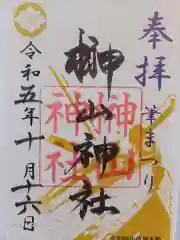 奉拝
筆まつり
榊山神社
榊山
神社
令和五年十月十六日